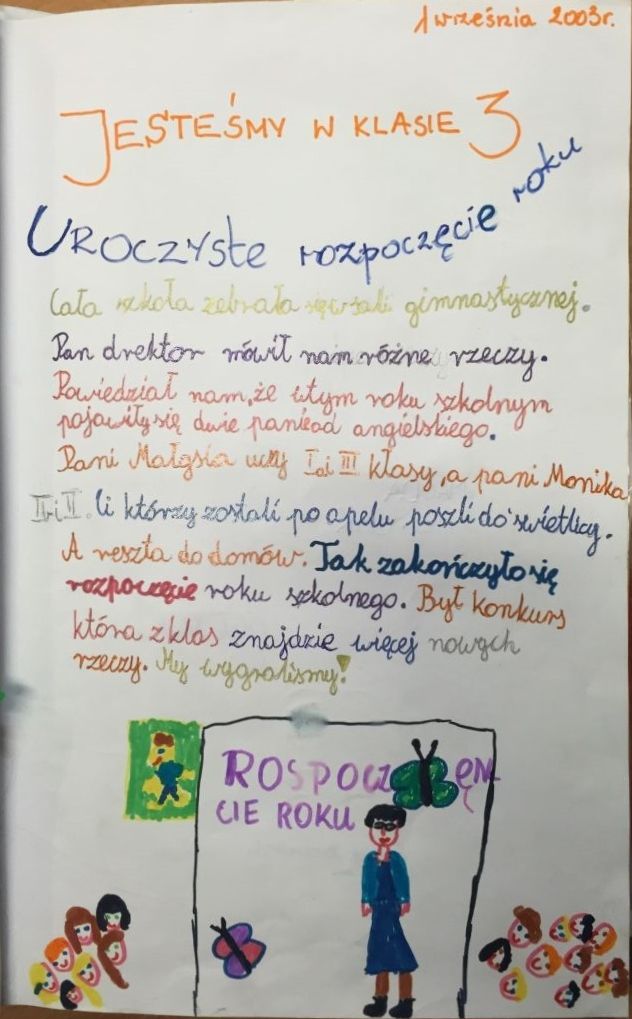 1 września 2003r.
JESTEŚMY W KLASIE 3
UROCZYSTE rozpoczęcie roku
Cała szkoła zebrała się w sali gimnastycznej.
Pan drektor mówił nam różne rzeczy.
Powiedział nam, że w tym roku szkolnym
pojawiły się dwie panie od angielskiego.
Pani Małgsia uczy I i III klasy, a pani Monika
II i V. Ci którzy zostali po apelu poszli do świetlicy.
A reszta do domów. Tak zakończyło się
rozpoczęcie roku szkolnego. Był konkurs
która z klas znajdzie więcej nowych
rzeczy. My wygraliśmy!
ROSPOCZ ĘN-
CIE ROKU